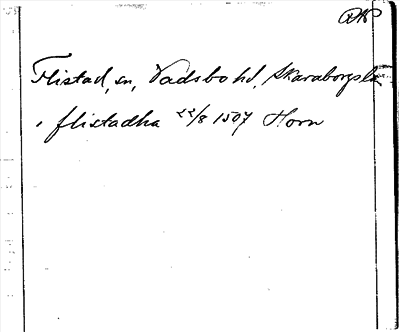 Flistad, sn, Vadsbo hd, Skaraborgs län
i flistadha 22/8 1507 Horn